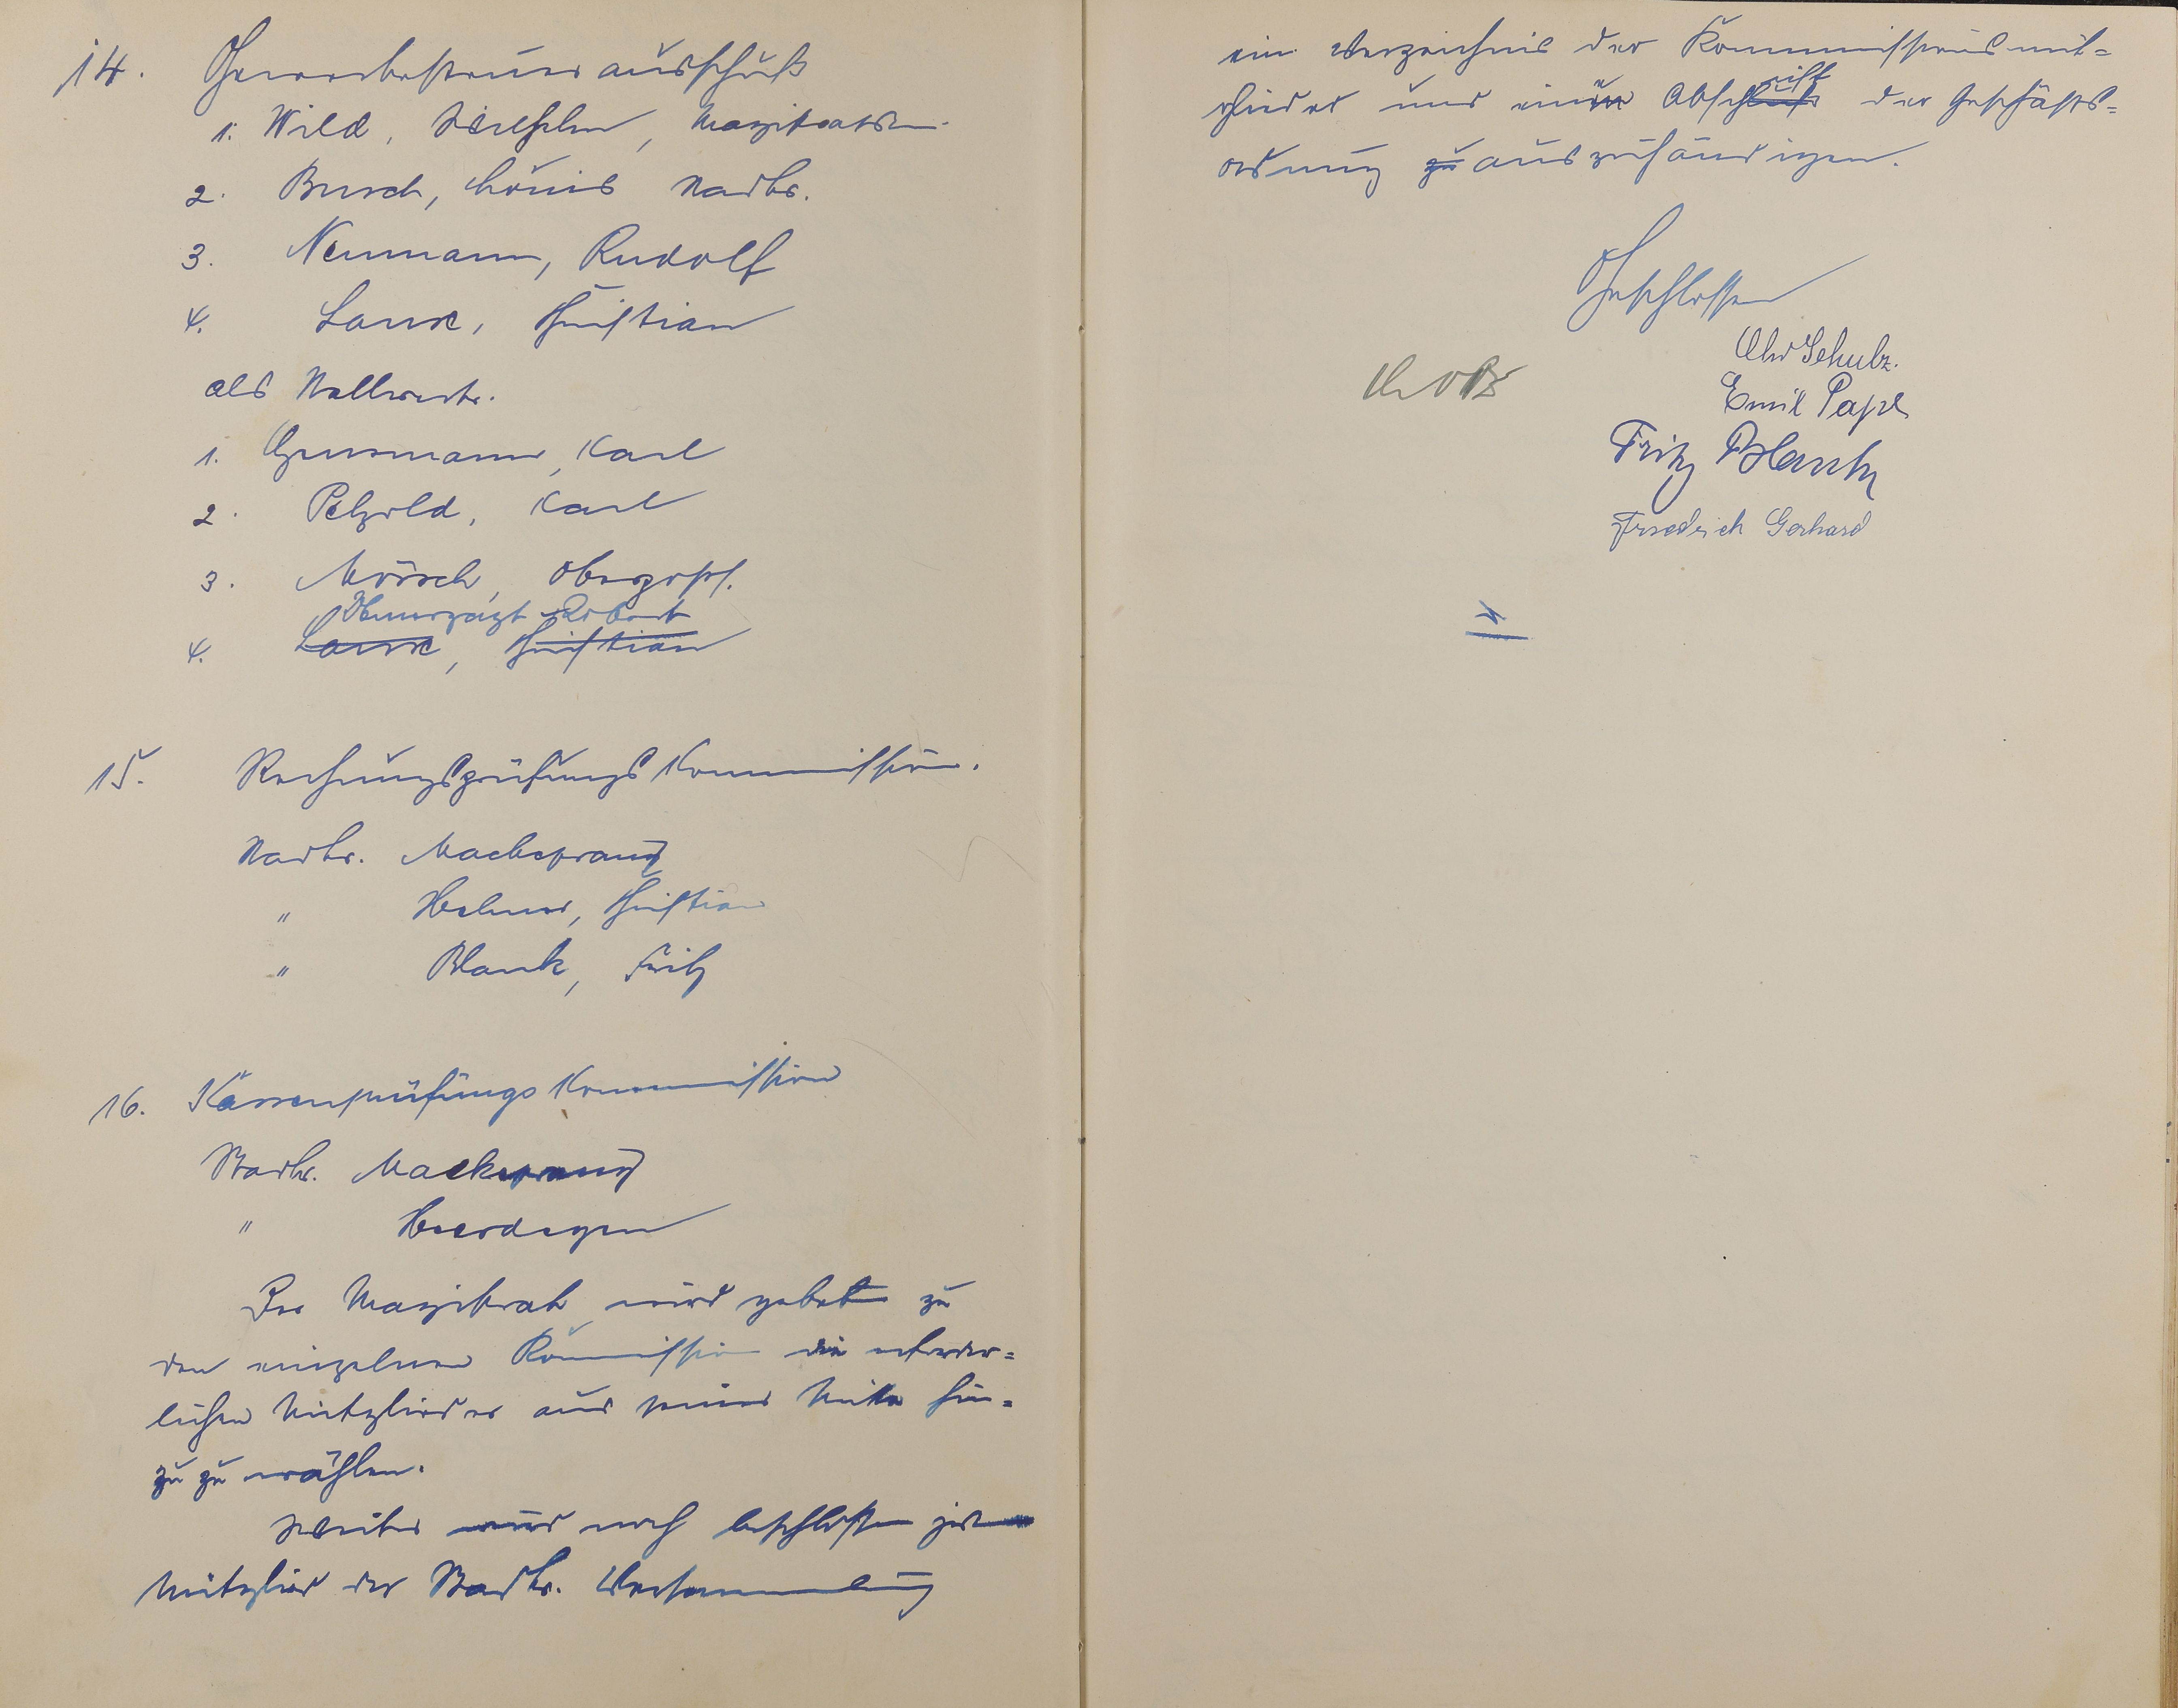 14. Gewerbesteuerausschuß
1. Wild, Wilhelm, Magistratsm.
2. Busch, Louis Stadtv.
3. Neumann, Rudolf
4. Lauxe, Christian
als Stellvertr.
1. Grusmann, Karl
2. Petzold, Karl
3. Mörsch, Obergesch.
Robert
4. Lauxe, Christian
15. Rechnungsprüfungs Kommission.
Stadtv. Macksprang
" Helmer, Christian
" Blank, Fritz
16. Kassenprüfungs Kommission
Stadtv. Macksprang
" Heerdegen
Der Magistrat wird gebet zu
den einzelnen Kommission die erforder=
lichen Mitglieder aus seiner Mitte hin=
zu zu wählen.
Weiter wird noch beschlossen jedem
Mitglied der Stadtv. Versammlung
ein Verzeichnis der Kommissionsmit=
glieder und eine Abschrift der Geschäfts=
ordnung zu auszuhändigen.
Geschlossen
Schulz.
Emil Pape
Fritz Blank
Friedrich Gerhard